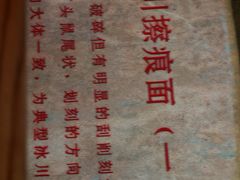 川擦痕面（一
破碎但有明显的刮削刻
头鼠尾状，划刻的方向
大体一致，为典型冰川